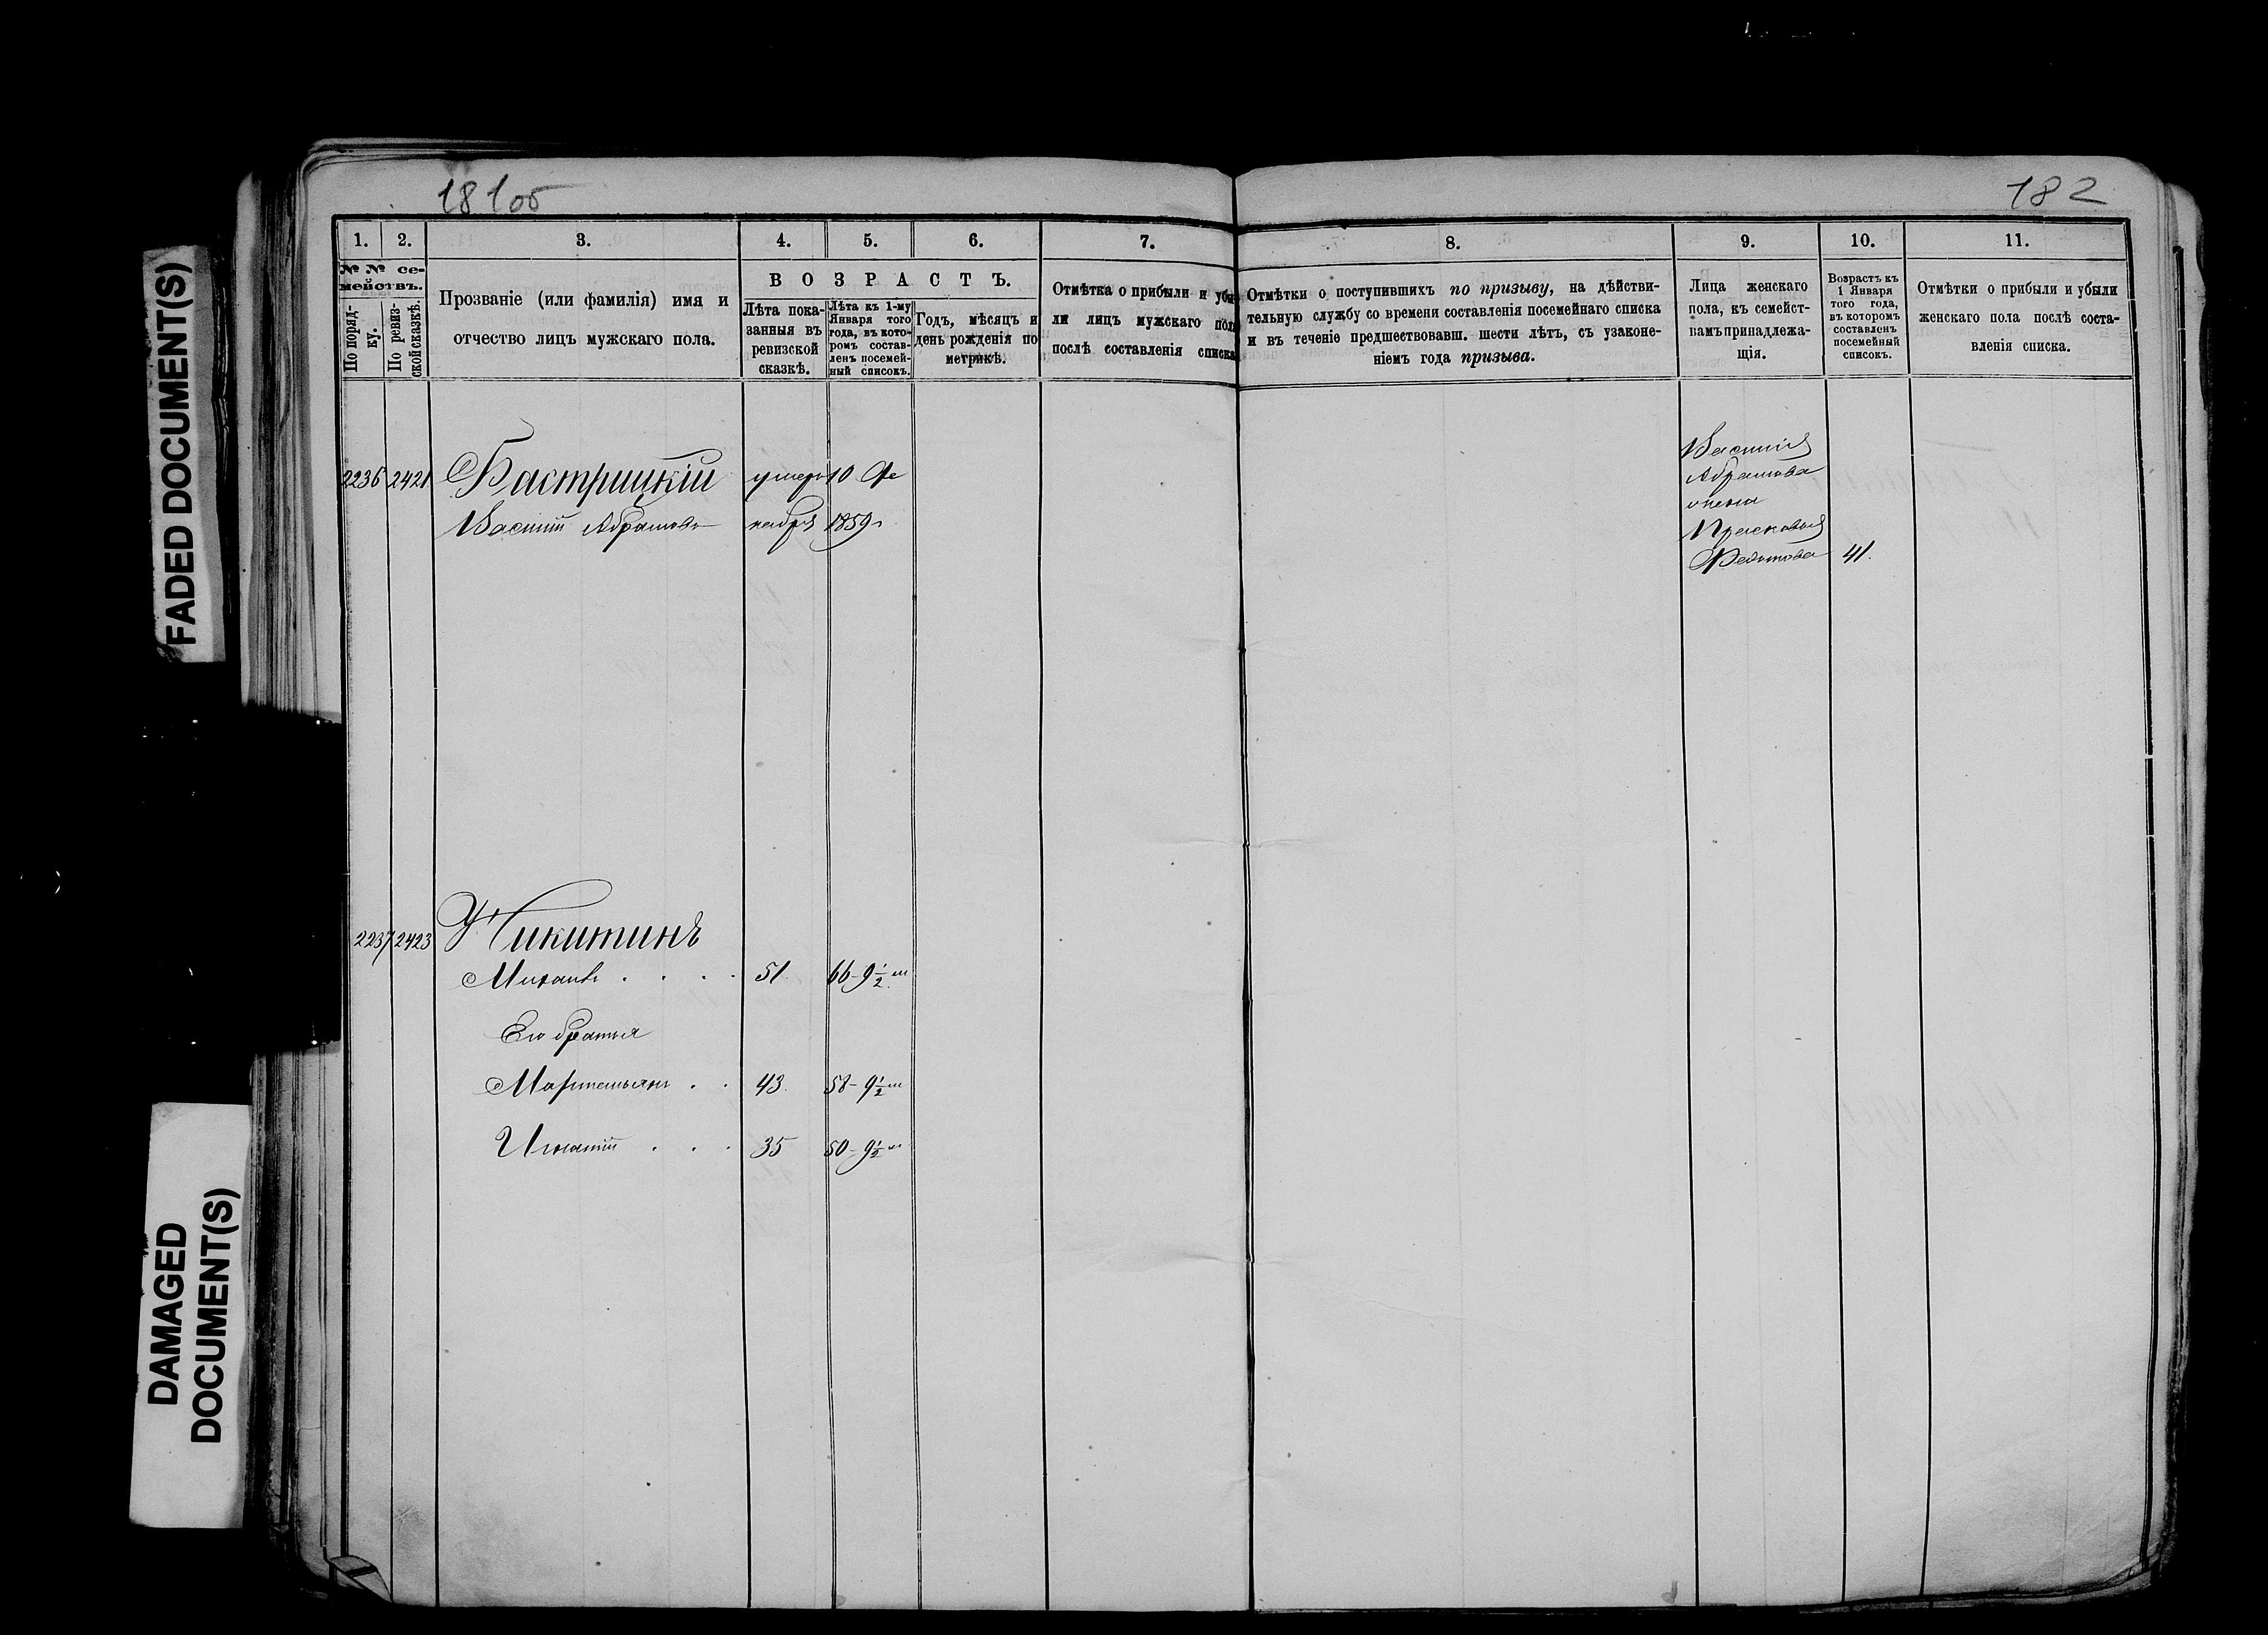 181об
182
FADED DOCUMENT(S)
DAMAGED
DOCUMENT(S)
1.
2.
3.
4.
5.
6.
7.
8.
9.
10.
11.
№ № се-
мействъ.
По поряд-
ку.
По ревиз-
ской сказкѣ.
Прозваніе (или фамилія) имя и
отчество лицъ мужскаго пола.
ВОЗРАСТЪ.
Лѣта пока-
занныя въ
ревизской
сказкѣ.
Лѣта къ 1-му
Января того
года, въ кото-
ромъ состав-
ленъ посемей-
ный списокъ.
Годъ, мѣсяцъ и
день рожденія по
метрикѣ.
Отмѣтка о прибыли и убы
ли лицъ мужскаго пола
послѣ составленія списка
Отмѣтки о поступившихъ по призыву, на дѣйстви-
тельную службу со времени составленія посемейнаго списка
и въ теченіе предшествовавш. шести лѣтъ, съ узаконе-
ніемъ года призыва.
Лица женскаго
пола, къ семейст-
вамъ принадлежа-
щія.
Возрастъ къ
1 Января
того года,
въ которомъ
составленъ
посемейный
списокъ.
Отмѣтки о прибыли и убыли
женскаго пола послѣ соста-
вленія списка.
2236 2421 Бастрицкій умеръ 10 Де
Василій Абрамовъ кабря 1859 г.
Василія
Абрамова
жена
Прасковья
Федотова 41.
2237 2423 Никитинъ
Михаилъ . . . . 51. 66-9½ м
Его братья
Мартемьянъ . . 43. 58-9½ м
Игнатій . . . 35 50-9½ м